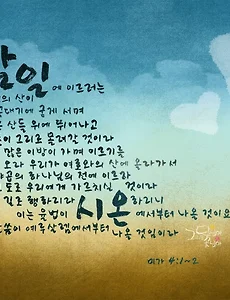 날일에 이르러는
의 산이
꼭대기에 굳게 서며
산들 위에 뛰어나고
이 그리로 몰려갈 것이라
많은 이방이 가며 이르기를
오라 우리가 여호와의 산에 올라가서
야곱의 하나님의 전에 이르자
도로 우리에게 가르치실 것이라
길로 행하리라 하리니
이는 율법이 시온에서부터 나올 것이요
말씀이 예루살렘에서부터 나올 것임이라
미가 4:1~2